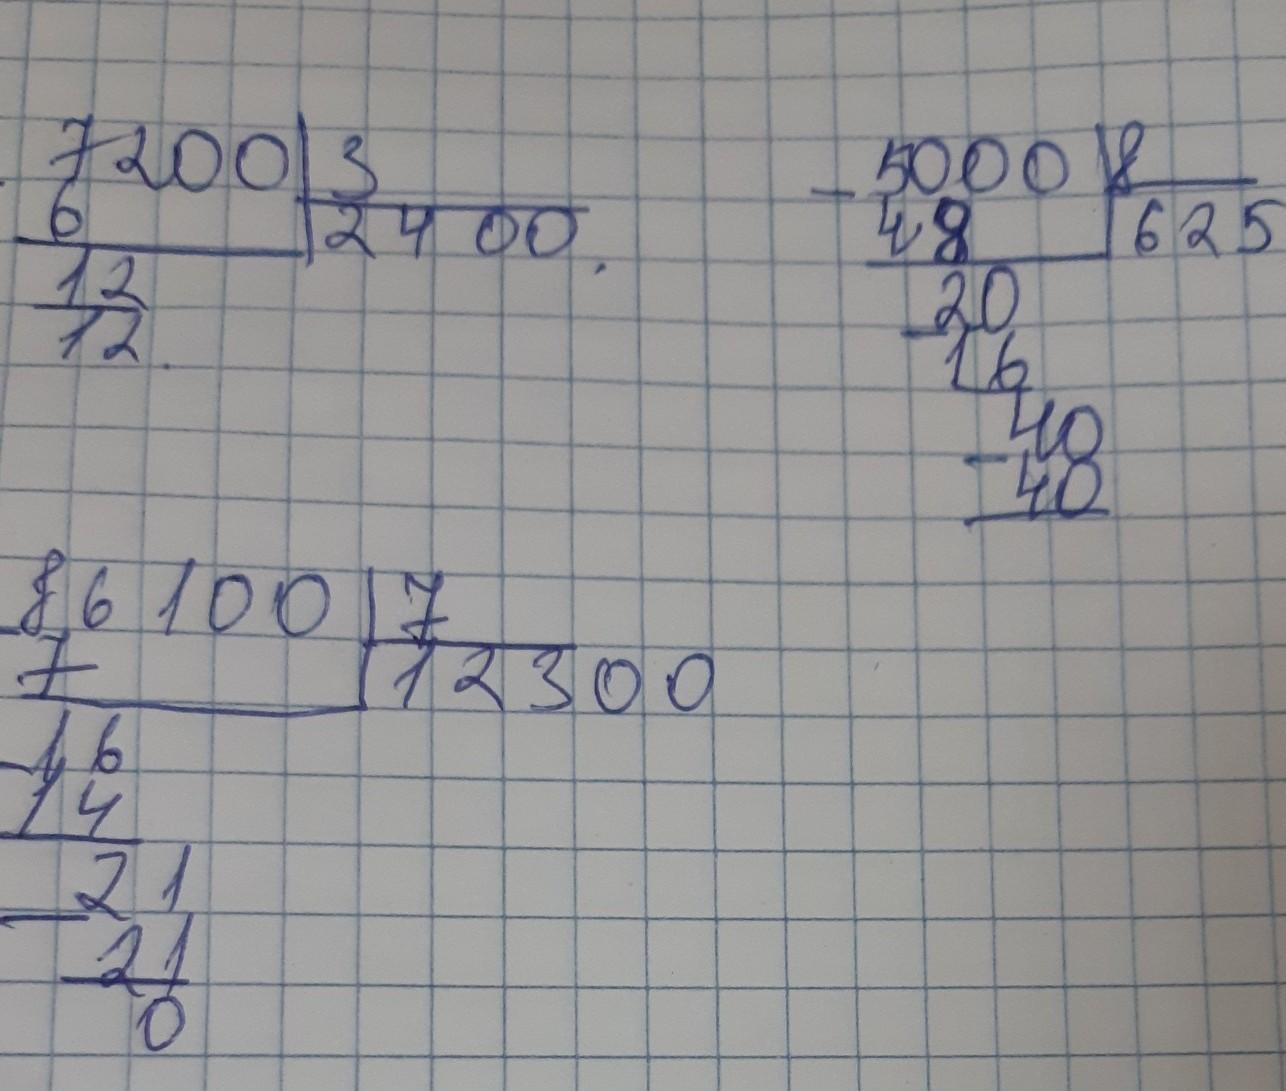 7200 3
6 2400.
12
12.
- 5000 8
48 625
20
- 16
40
- 40
86100 7
- 7 12300
- 16
14
- 21
21
0